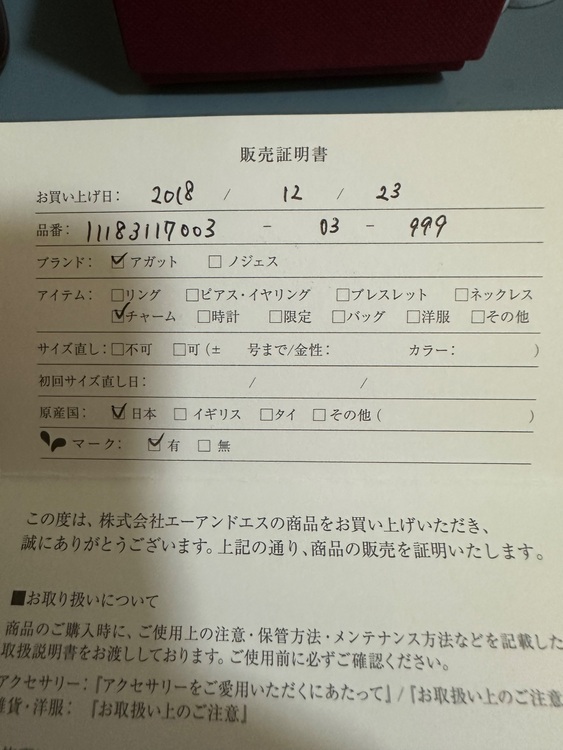 販売証明書
お買い上げ日： 2018 / 12 / 23
品番： 11183117003 - 03 - 999
ブランド： ☑アガット □ノジェス
アイテム： □リング □ピアス・イヤリング □ブレスレット □ネックレス
☑チャーム □時計 □限定 □バッグ □洋服 □その他
サイズ直し：□不可 □可（± 号まで/金性： カラー： ）
初回サイズ直し日： / /
原産国： ☑日本 □イギリス □タイ □その他（ ）
マーク： ☑有 □無
この度は、株式会社エーアンドエスの商品をお買い上げいただき、
誠にありがとうございます。上記の通り、商品の販売を証明いたします。
■お取り扱いについて
商品のご購入時に、ご使用上の注意・保管方法・メンテナンス方法などを記載した
取扱説明書をお渡ししております。ご使用前に必ずご確認ください。
アクセサリー：『アクセサリーをご愛用いただくにあたって』/『お取扱い上のご注意
雑貨・洋服： 『お取扱い上のご注意』